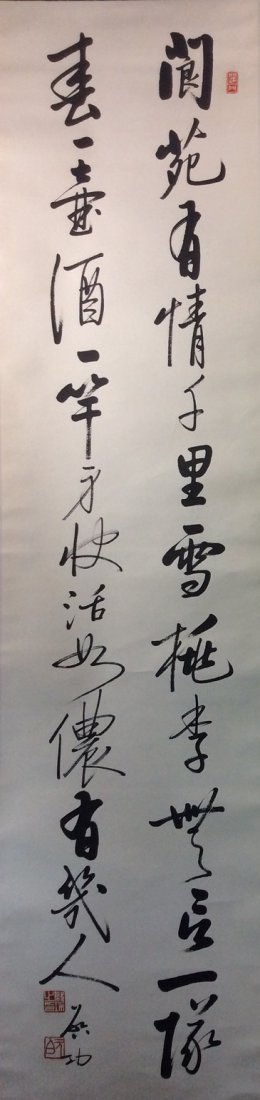 閬苑有情千里雪桃李無言一隊
春一壺酒一竿身快活如儂有幾人
启功